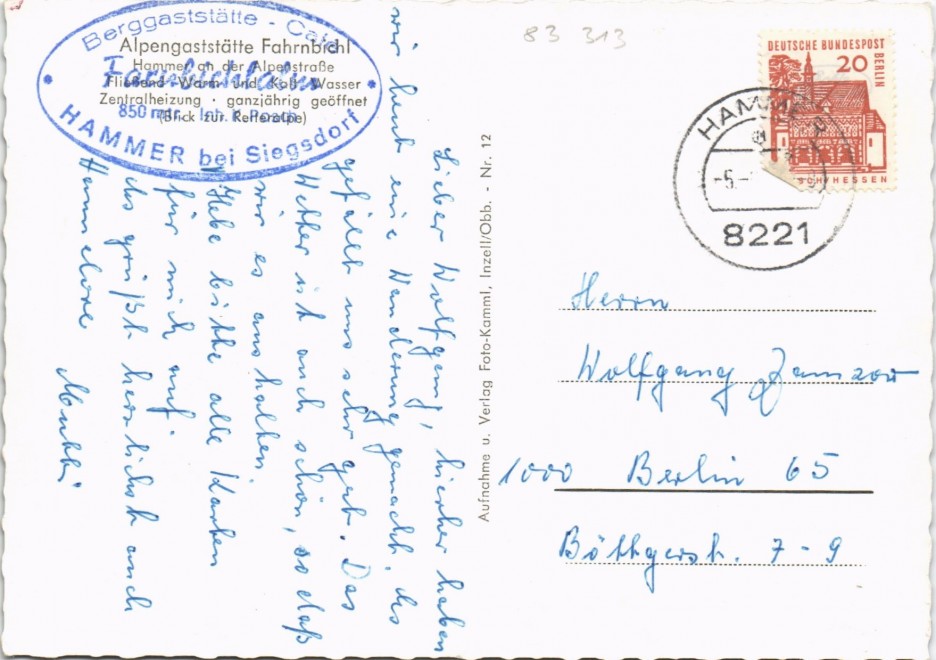 Berggaststätte - Café
Farnbichlalm
850 mtr. Inh.
HAMMER bei Siegsdorf
Alpengaststätte Fahrnbichl
Hammer an der Alpenstraße
Fließend Warm- und Kalt-Wasser
Zentralheizung · ganzjährig geöffnet
(Blick zur Reiteralpe)
83 313
DEUTSCHE BUNDESPOST
BERLIN
20
HESSEN
HAMMER
-5.-
8221
Lieber Wolfgang, hierher haben
wir heut eine Wanderung gemacht. Es
gefällt uns sehr gut. Das
Wetter ist auch schön, so daß
wir es aushalten.
Hebe bitte alle Karten
für mich auf.
Es grüßt herzlichst auch
Hannelore
Mutti
Aufnahme u. Verlag Foto-Kamml, Inzell/Obb. - Nr. 12
Herrn
Wolfgang Zamzow
1000 Berlin 65
Böttgerstr. 7-9